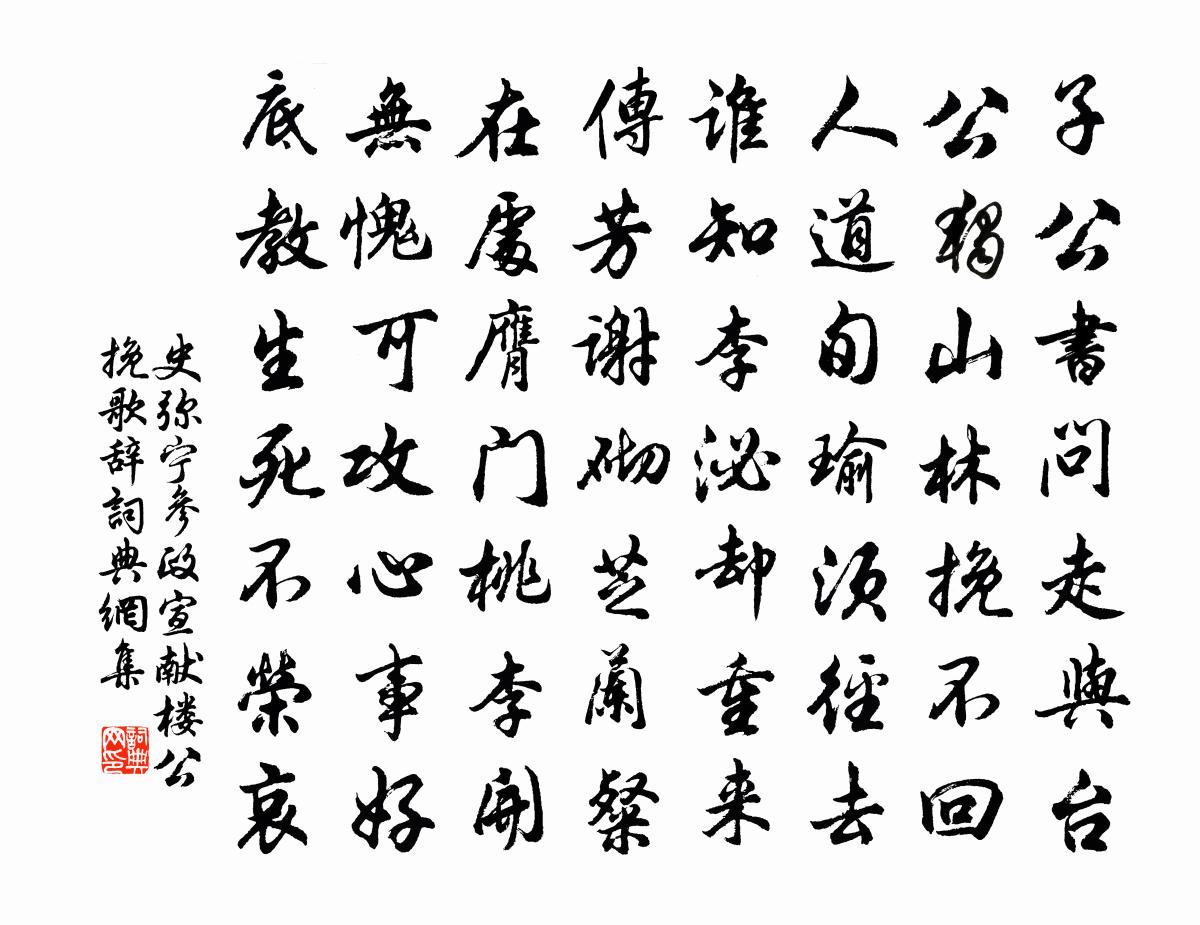 子公書問走與台
公獨山林挽不回
人道旬瑜須徑去
誰知李泌却重来
傳芳謝砌芝蘭粲
在處膺门桃李開
無愧可攻心事好
底教生死不榮哀
史弥宁參政宣献楼公
挽歌辞詞典網集
詞典网印